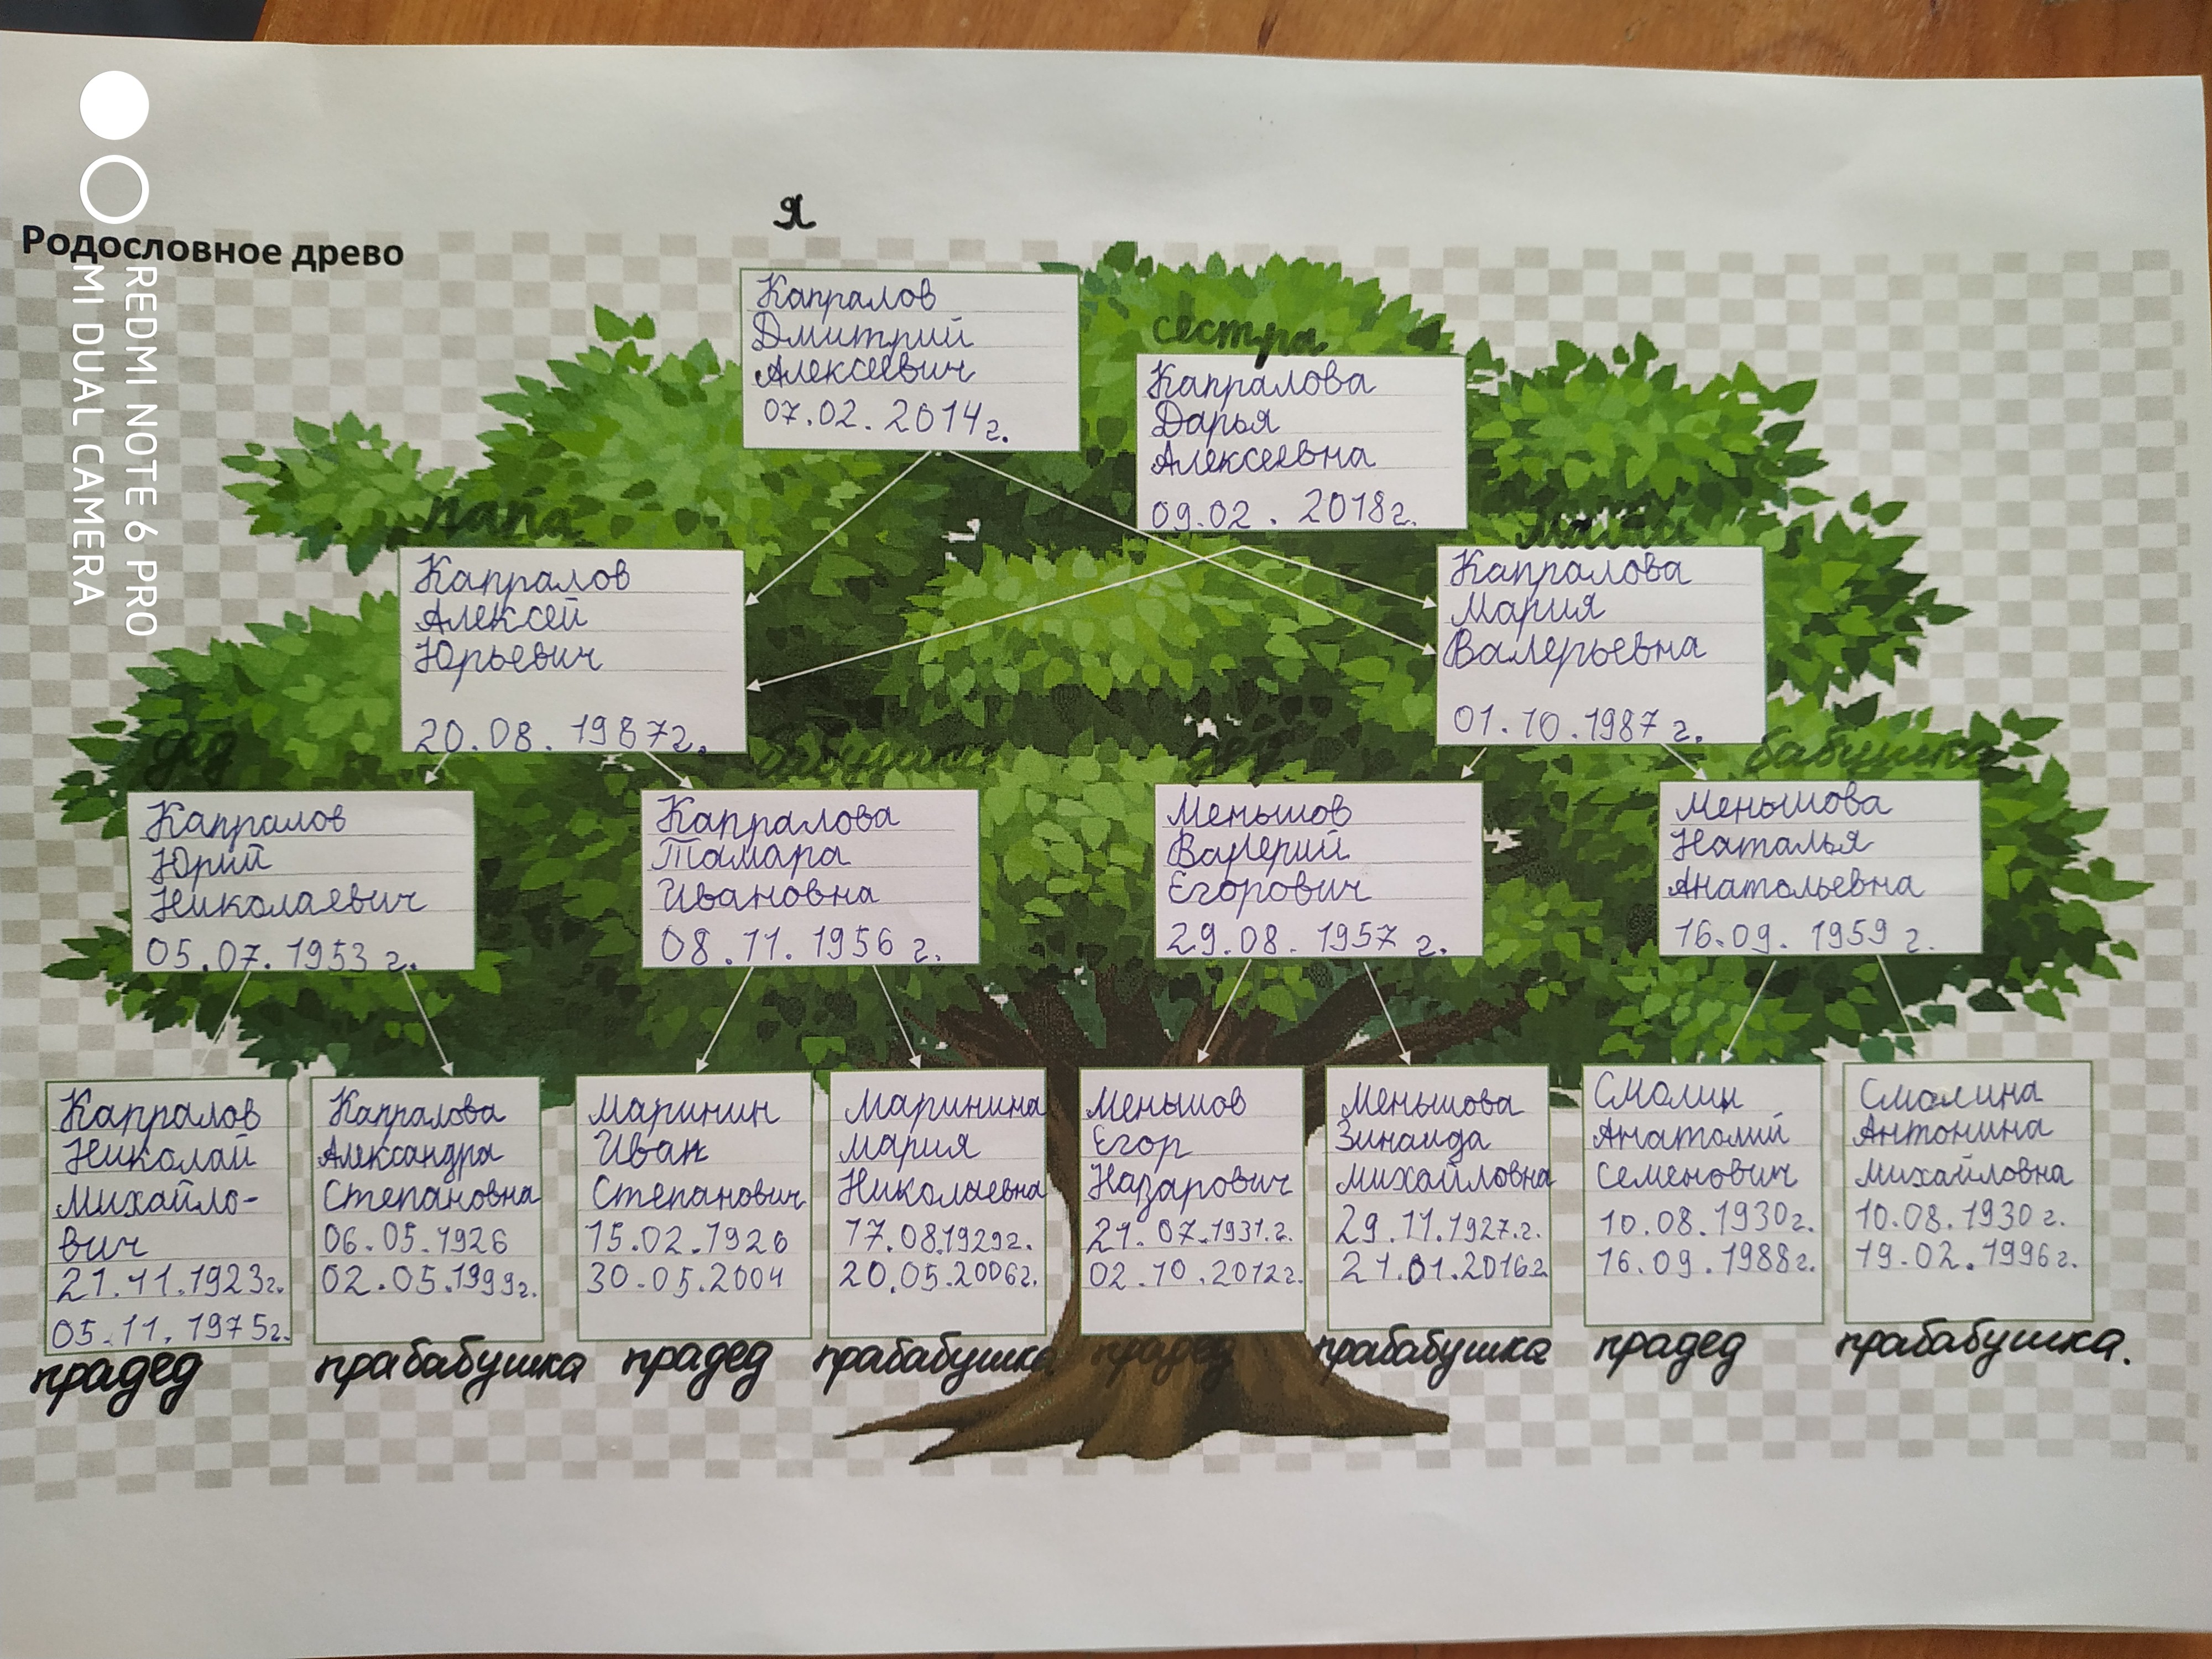 REDMI NOTE 6 PRO
MI DUAL CAMERA
Родословное древо
Я
Капралов
Дмитрий
Алексеевич
07.02.2014г.
сестра
Капралова
Дарья
Алексеевна
09.02.2018г.
папа
Капралов
Алексей
Юрьевич
20.08.1987г.
мама
Капралова
Мария
Валерьевна
01.10.1987г.
дед
Капралов
Юрий
Николаевич
05.07.1953г.
бабушка
Капралова
Тамара
Ивановна
08.11.1956г.
дед
Меньшов
Валерий
Егорович
29.08.1957г.
бабушка
Меньшова
Наталья
Анатольевна
16.09.1959г.
Капралов
Николай
Михайло-
вич
21.11.1923г.
05.11.1975г.
прадед
Капралова
Александра
Степановна
06.05.1926
02.05.1999г.
прабабушка
Маринин
Иван
Степанович
15.02.1926
30.05.2004
прадед
Маринина
Мария
Николаевна
17.08.1929г.
20.05.2006г.
прабабушка
Меньшов
Егор
Назарович
21.07.1931.г.
02.10.2012г.
прадед
Меньшова
Зинаида
Михайловна
29.11.1927.г.
21.01.2016г.
прабабушка
Смолин
Анатолий
Семенович
10.08.1930г.
16.09.1988г.
прадед
Смолина
Антонина
Михайловна
10.08.1930г.
19.02.1996г.
прабабушка.